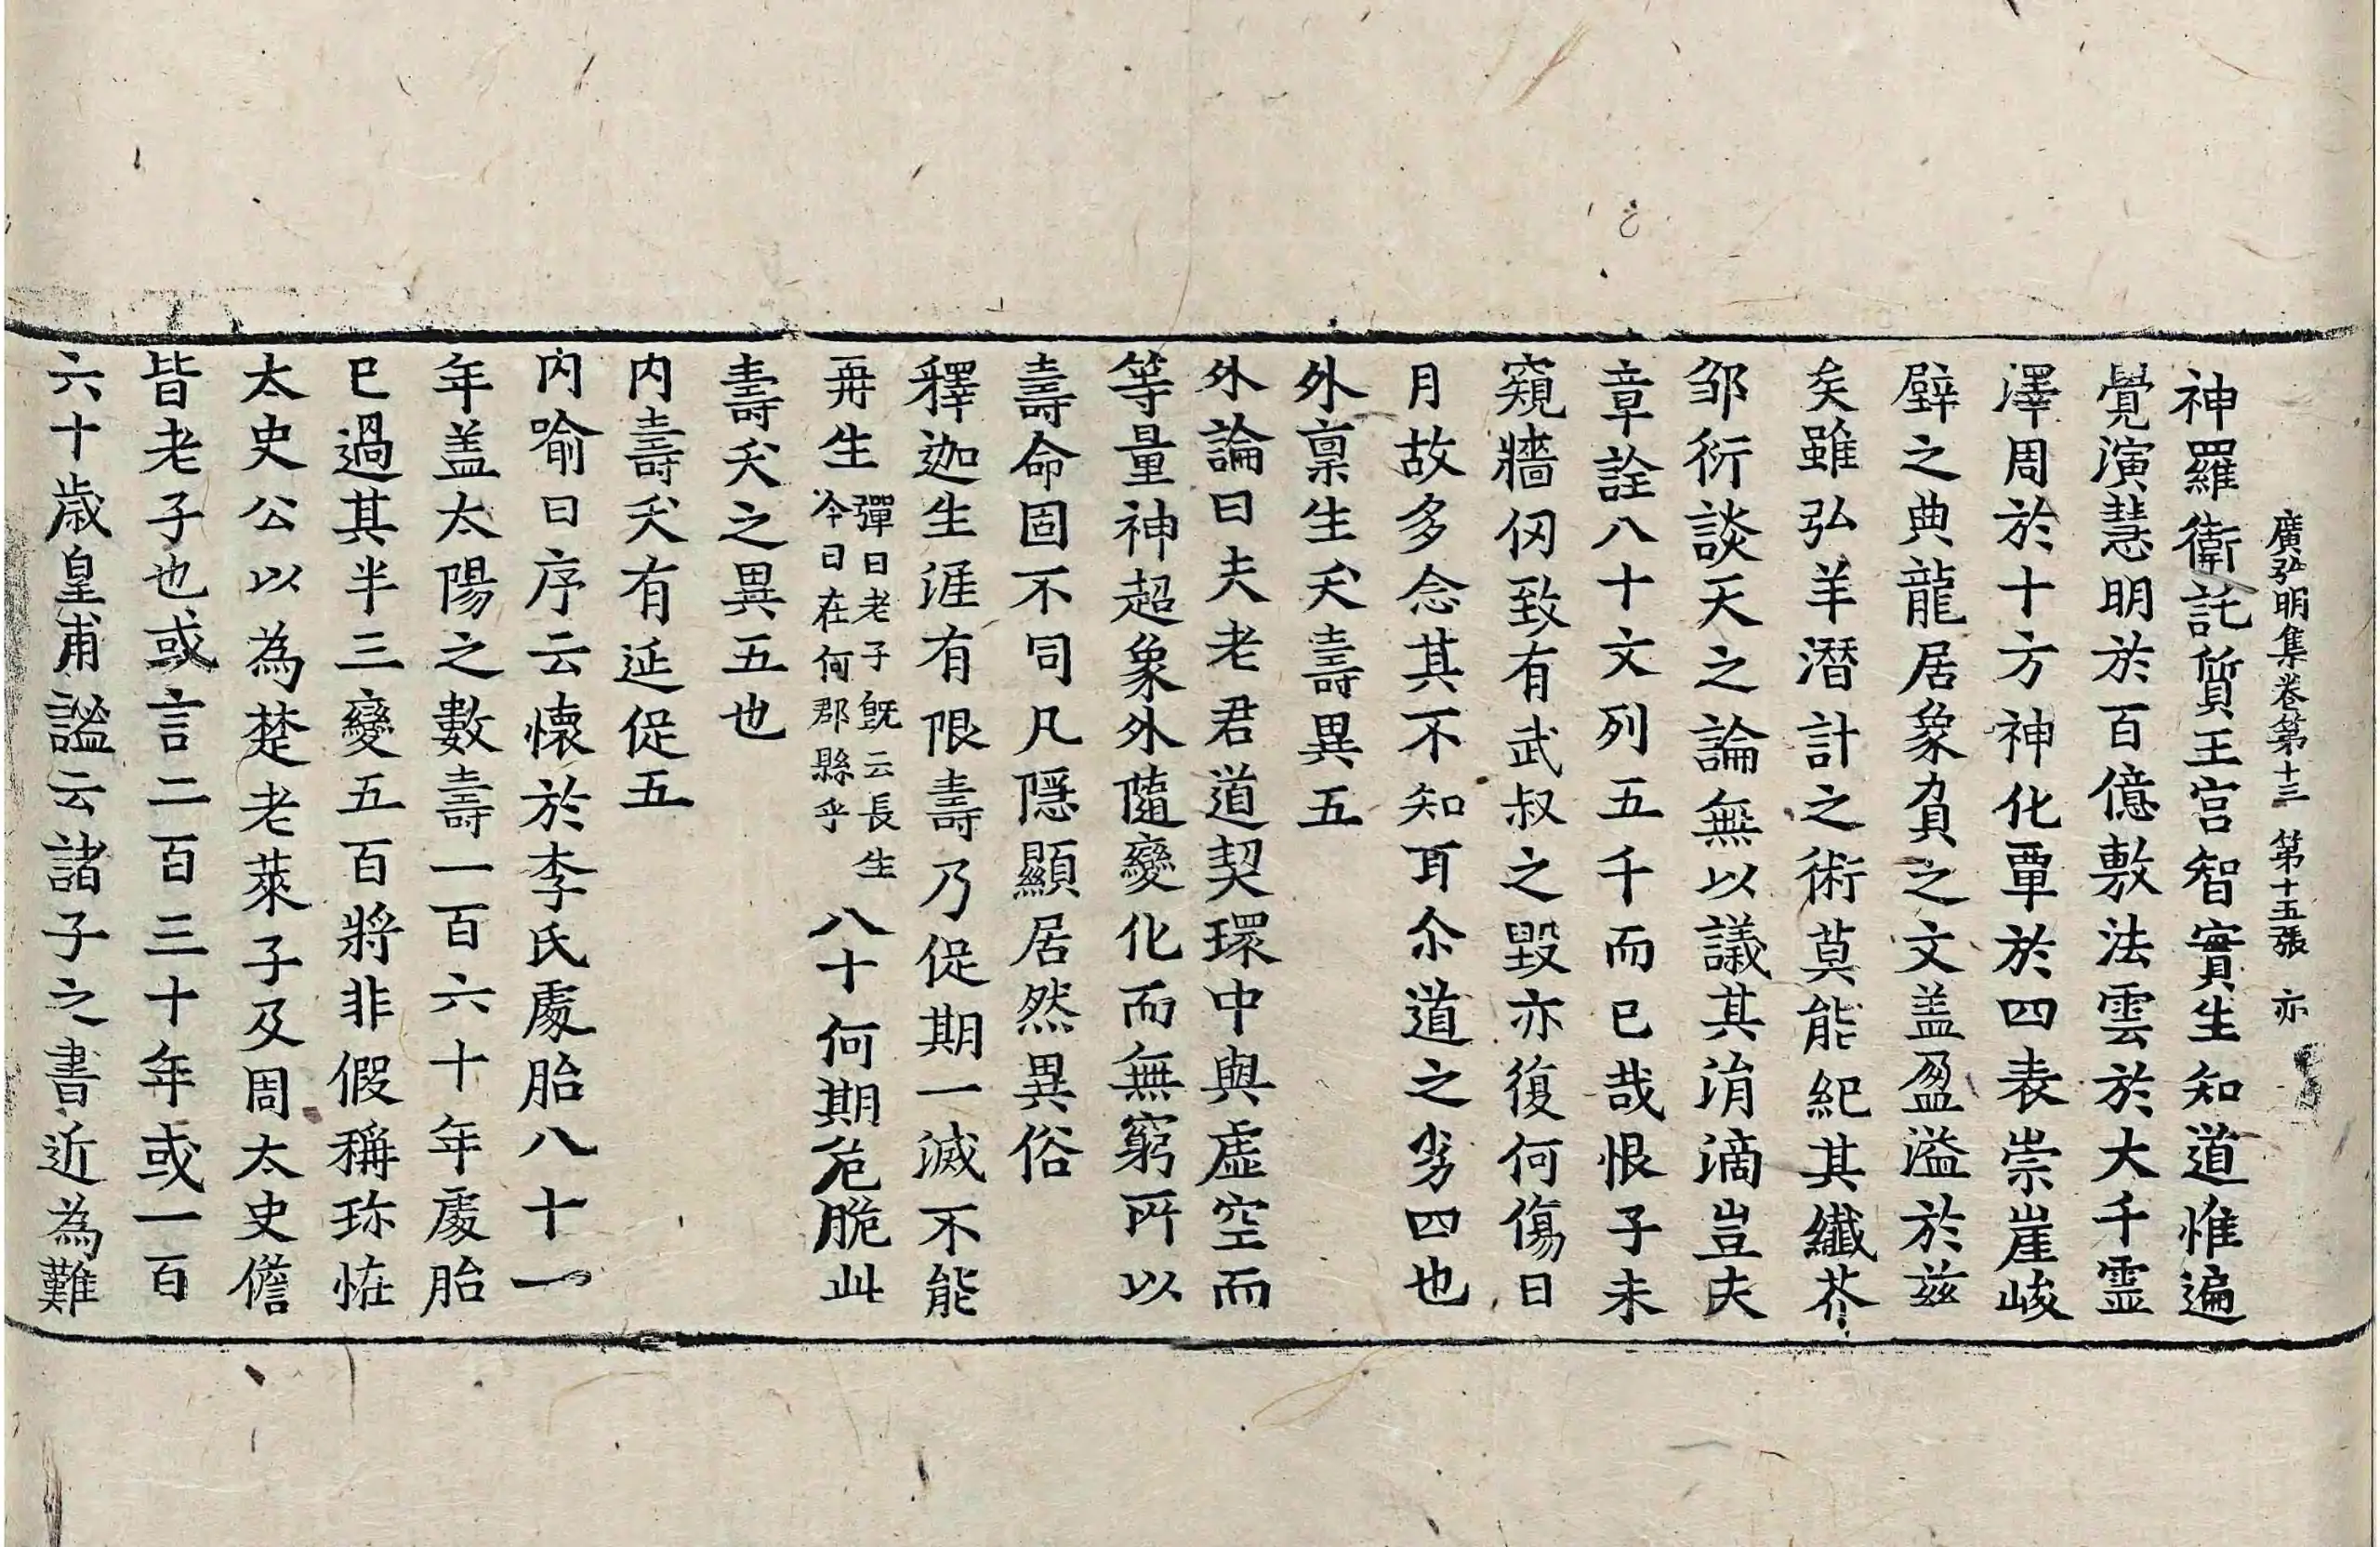 廣弘明集卷第十三 第十五張 亦
神羅衛託質王宮智實生知道惟遍
覺演慧明於百億敷法雲於大千靈
澤周於十方神化覃於四表崇崖峻
壁之典龍居象負之文盖盈溢於兹
矣雖弘羊潛計之術莫能紀其纖芥
邹衍談天之論無以議其涓滴豈夫
章詮八十文列五千而已哉恨子未
窺牆仞致有武叔之毀亦復何傷日
月故多念其不知耳尒道之劣四也
外稟生夭壽異五
外論曰夫老君道契環中與虛空而
等量神超象外隨變化而無窮所以
壽命固不同凡隱顯居然異俗
釋迦生涯有限壽乃促期一滅不能
再生 彈曰老子旣云長生 今日在何郡縣乎 八十何期危脆此
壽夭之異五也
内壽夭有延促五
内喻曰序云懐於李氏處胎八十一
年盖太陽之數壽一百六十年處胎
已過其半三變五百將非假稱珎恠
太史公以為楚老萊子及周太史儋
皆老子也或言二百三十年或一百
六十歳皇甫謐云諸子之書近為難